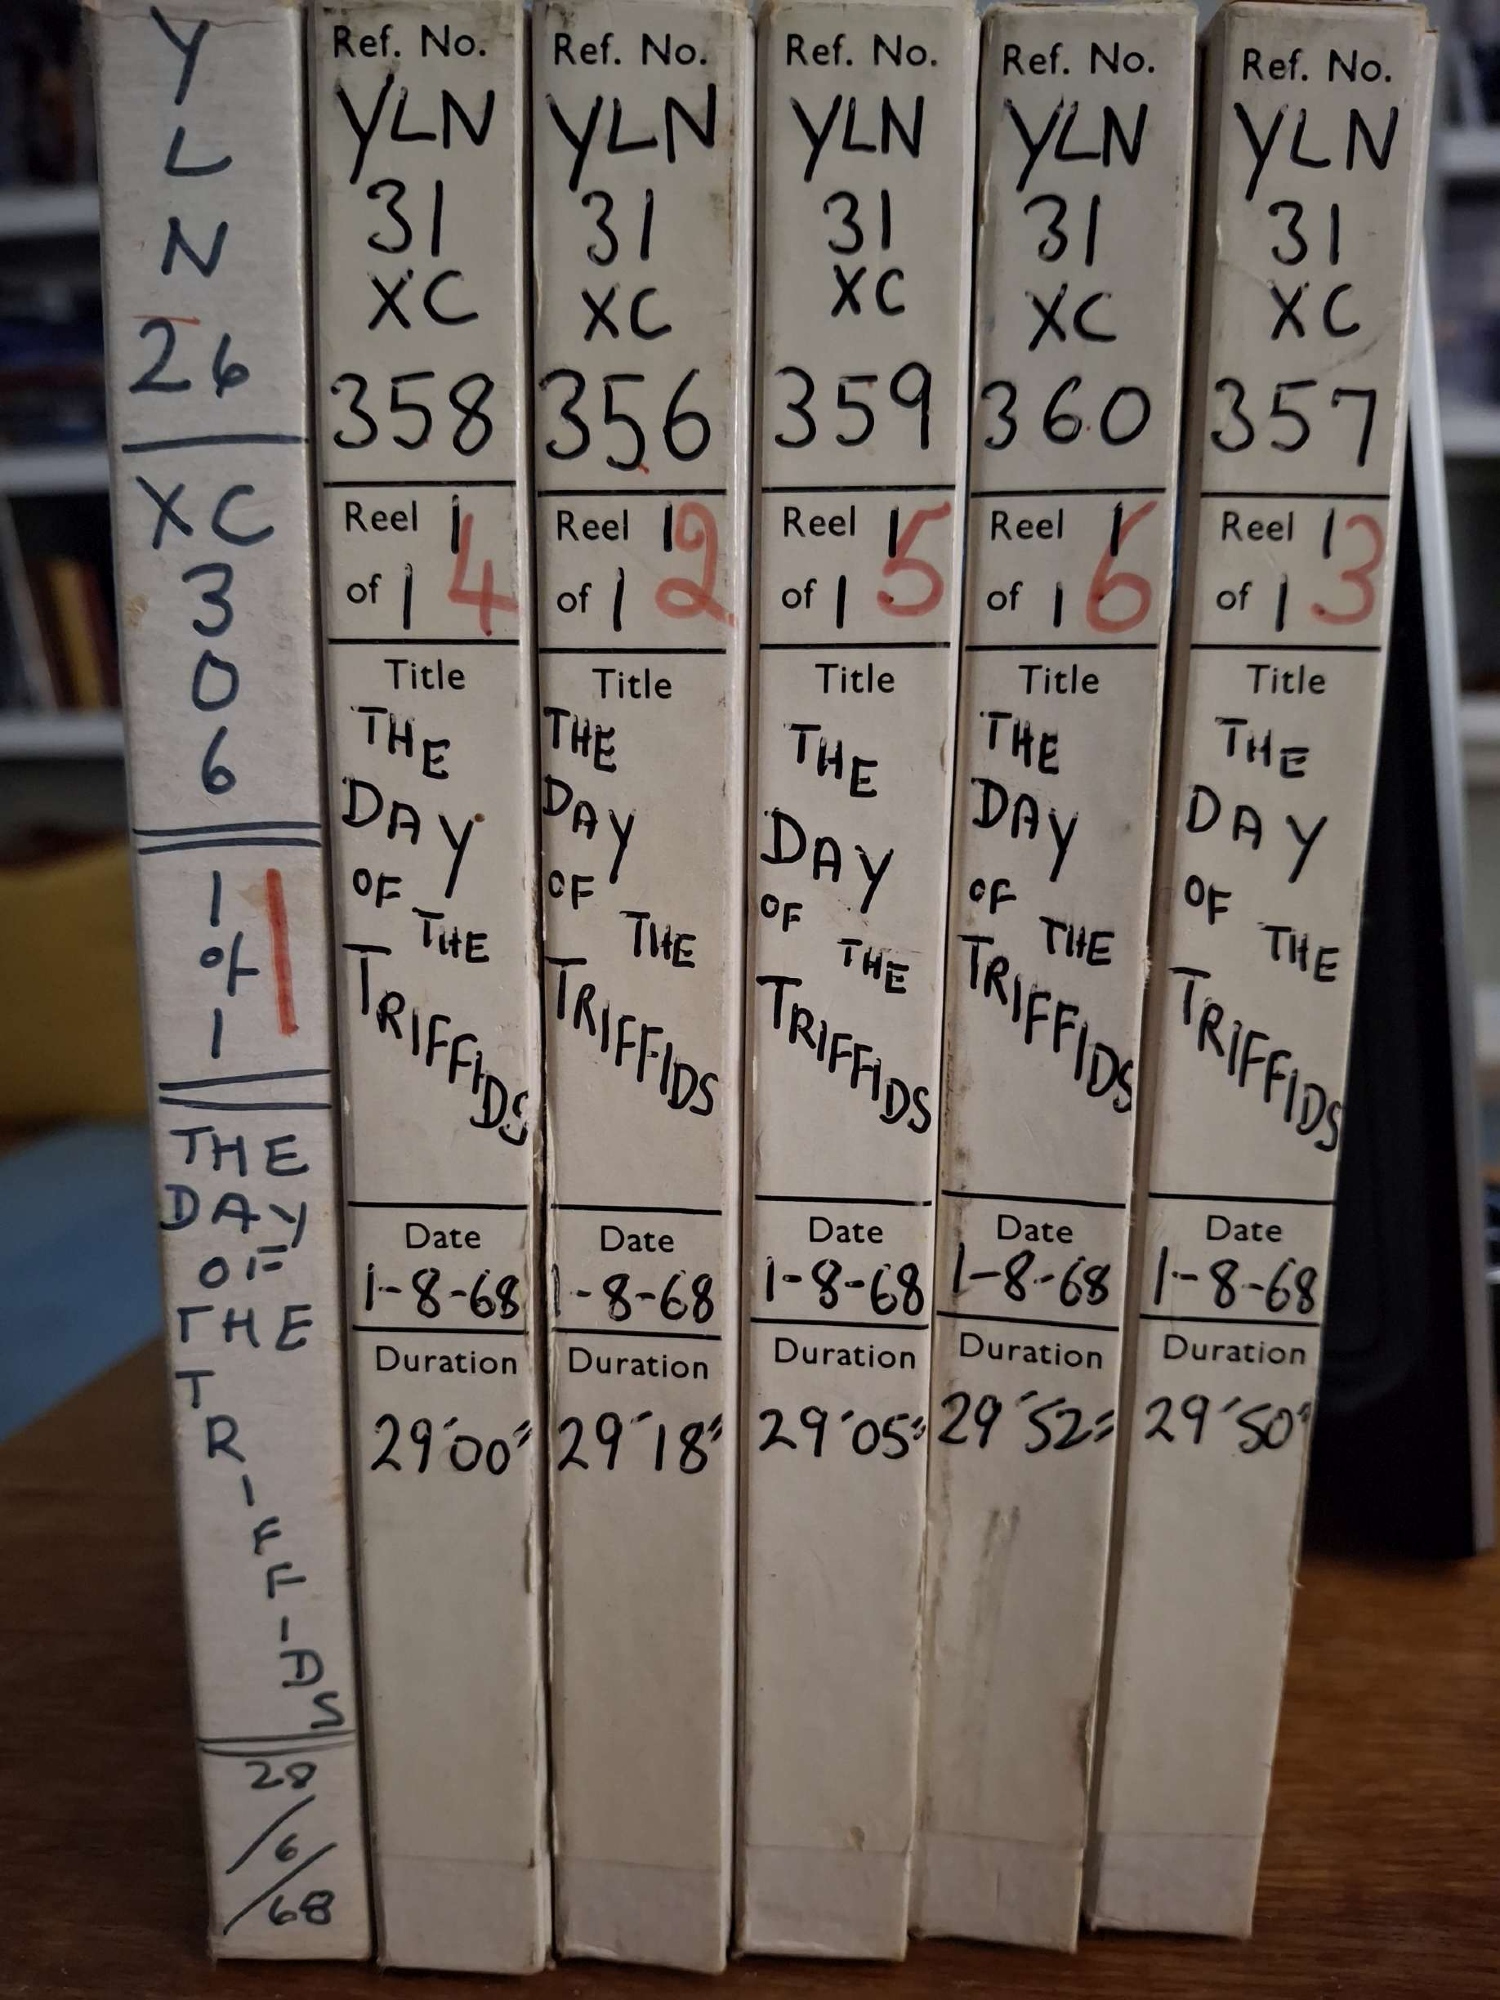 Y
L
N
26
XC
3
0
6
1
of
1
1
THE
DAY
OF
THE
T
R
I
F
F
I
D
S
28
/6
/68
Ref. No.
YLN
31
XC
358
Reel 1
of 1
4
Title
THE
DAY
OF THE
TRIFFIDS
Date
1-8-68
Duration
29'00"
Ref. No.
YLN
31
XC
356
Reel 1
of 1
2
Title
THE
DAY
OF
THE
TRIFFIDS
Date
1-8-68
Duration
29'18"
Ref. No.
YLN
31
XC
359
Reel 1
of 1
5
Title
THE
DAY
OF
THE
TRIFFIDS
Date
1-8-68
Duration
29'05"
Ref. No.
YLN
31
XC
360
Reel 1
of 1
6
Title
THE
DAY
OF
THE
TRIFFIDS
Date
1-8-68
Duration
29'52"
Ref. No.
YLN
31
XC
357
Reel 1
of 1
3
Title
THE
DAY
OF
THE
TRIFFIDS
Date
1-8-68
Duration
29'50"